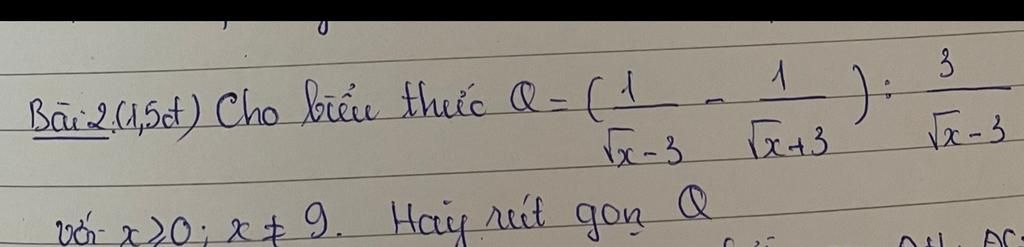 Bài 2. (1,5đ) Cho biểu thức Q = ( 1/(√x - 3) - 1/(√x + 3) ) : 3/(√x - 3)
với x ≥ 0; x ≠ 9. Hãy rút gọn Q